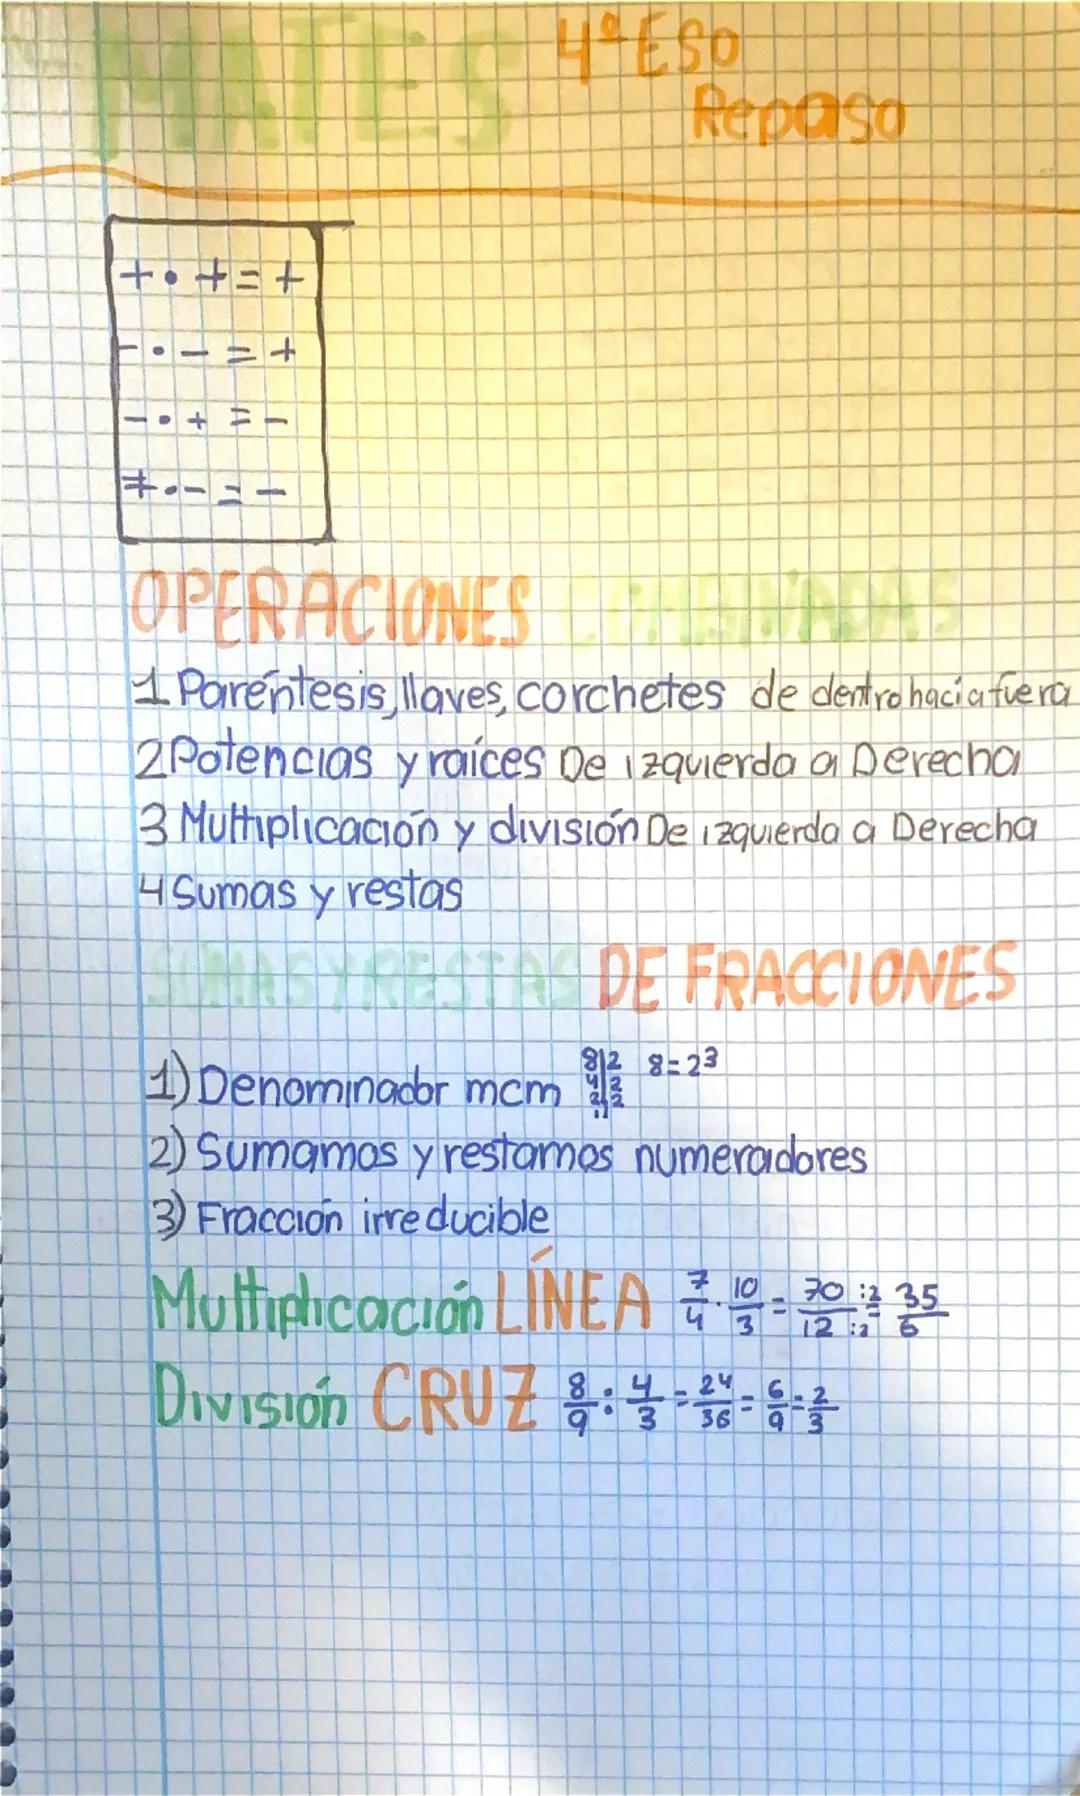 MATES 4º ESO
Repaso
+ • + = +
- • - = +
- • + = -
+ • - = -
OPERACIONES COMBINADAS
1 Paréntesis, llaves, corchetes de dentro hacia fuera
2 Potencias y raíces De izquierda a Derecha
3 Multiplicación y división De izquierda a Derecha
4 Sumas y restas
SUMAS Y RESTAS DE FRACCIONES
1) Denominador mcm 8|2 8=2³
4|2
2|2
1|
2) Sumamos y restamos numeradores
3) Fracción irreducible
Multiplicación LÍNEA 7/4 · 10/3 = 70/12 :2/:2 = 35/6
División CRUZ 8/9 : 4/3 = 24/36 = 6/9 = 2/3